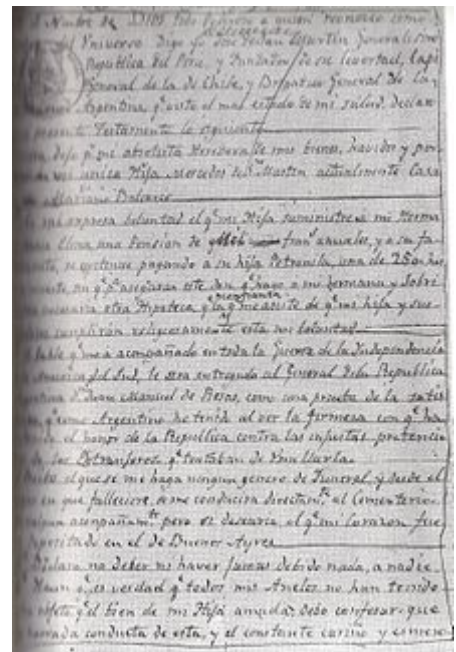 Nombre de DIOS todo Poderoso a quien reconozco como
del Universo Digo yo José de San Martin, Generalisimo
República del Perú, y Fundador de su Livertad, Capi
General de la de Chile, y Brigadier General de la
Argentina, qe visto el mal estado de mi salud, declaro
presente Testamento lo siguiente
dejo pr mi absoluta Heredera de mis bienes, havidos y por
mi unica Hija Mercedes de Sn Martin actualmente casa
Mariano Balcarce
mi expresa voluntad el qe mi Hija suministre a mi Herma
Elena, una Pension de Mil fran anuales, y a su fa
se continue pagando a su hija Petronila, una de 250 has
qe pa asegurar este don qe hago a mi hermana y Sobri
necesaria otra Hipoteca qe la confianza qe me asiste de qe mi hija y sus
cumpliran religiosamente esta mi voluntad
Sable qe me a acompañado en toda la Guerra de la Independencia
America del Sud, le sera entregado al General de la Republica
Dn Juan Manuel de Rosas, como una prueba de la satis
qe como Argentino he tenido al ver la firmeza con qe ha
el honor de la Republica contra las injustas preten
de los Extranjeros qe trataban de Umillarla
el que se me haga ningun genero de Funeral, y desde el
en que falleciere, se me conducira directamte al Cementerio
ningun acompañamto pero si desearia, el qe mi Corazon fue
depositado en el de Buenos Ayres
Declaro no deber ni haver jamas debido nada, a nadie
Aunqe es verdad qe todos mis Anelos no han tenido
objeto qe el bien de mi Hija amada, debo confesar que
honrada conducta de esta, y el constante cariño y esmero